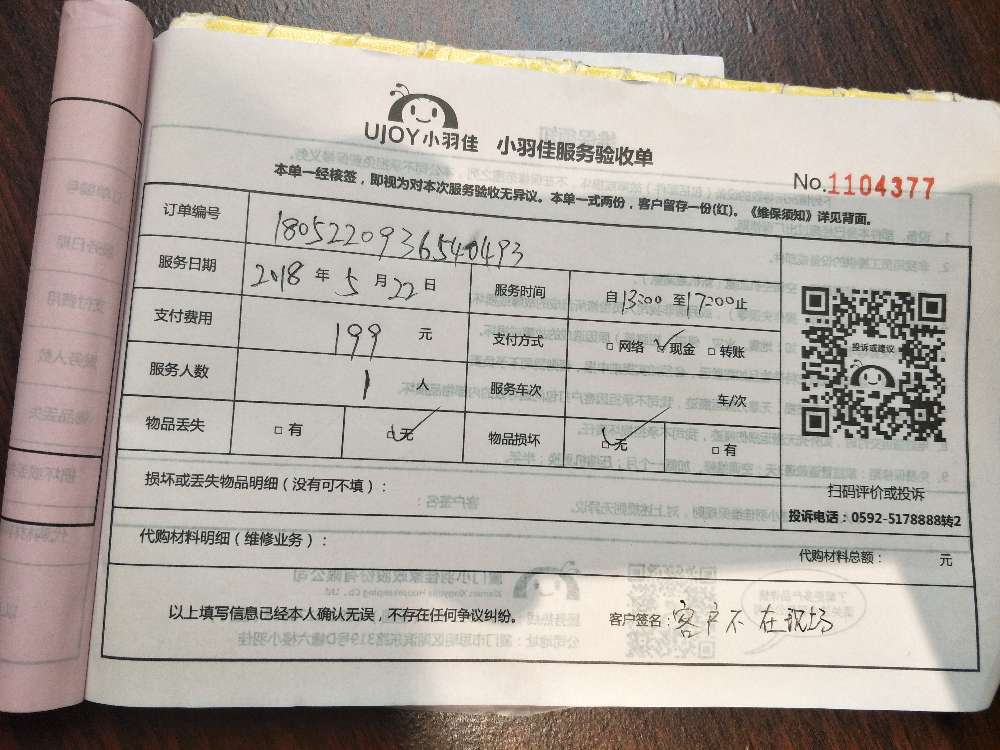 UJOY小羽佳 小羽佳服务验收单
No.1104377
本单一经核签，即视为对本次服务验收无异议。本单一式两份，客户留存一份(红)。《维保须知》详见背面。
订单编号 180522093654049​3
服务日期 2018 年 5 月 22 日 服务时间 自13:00 至17:00止
支付费用 199 元 支付方式 □网络 ☑现金 □转账
服务人数 1 人 服务车次 车/次
物品丢失 □有 ☑无 物品损坏 ☑无 □有
投诉或建议
扫码评价或投诉
投诉电话：0592-5178888转2
损坏或丢失物品明细（没有可不填）：
代购材料明细（维修业务）： 代购材料总额： 元
以上填写信息已经本人确认无误，不存在任何争议纠纷。 客户签名：客户不在现场